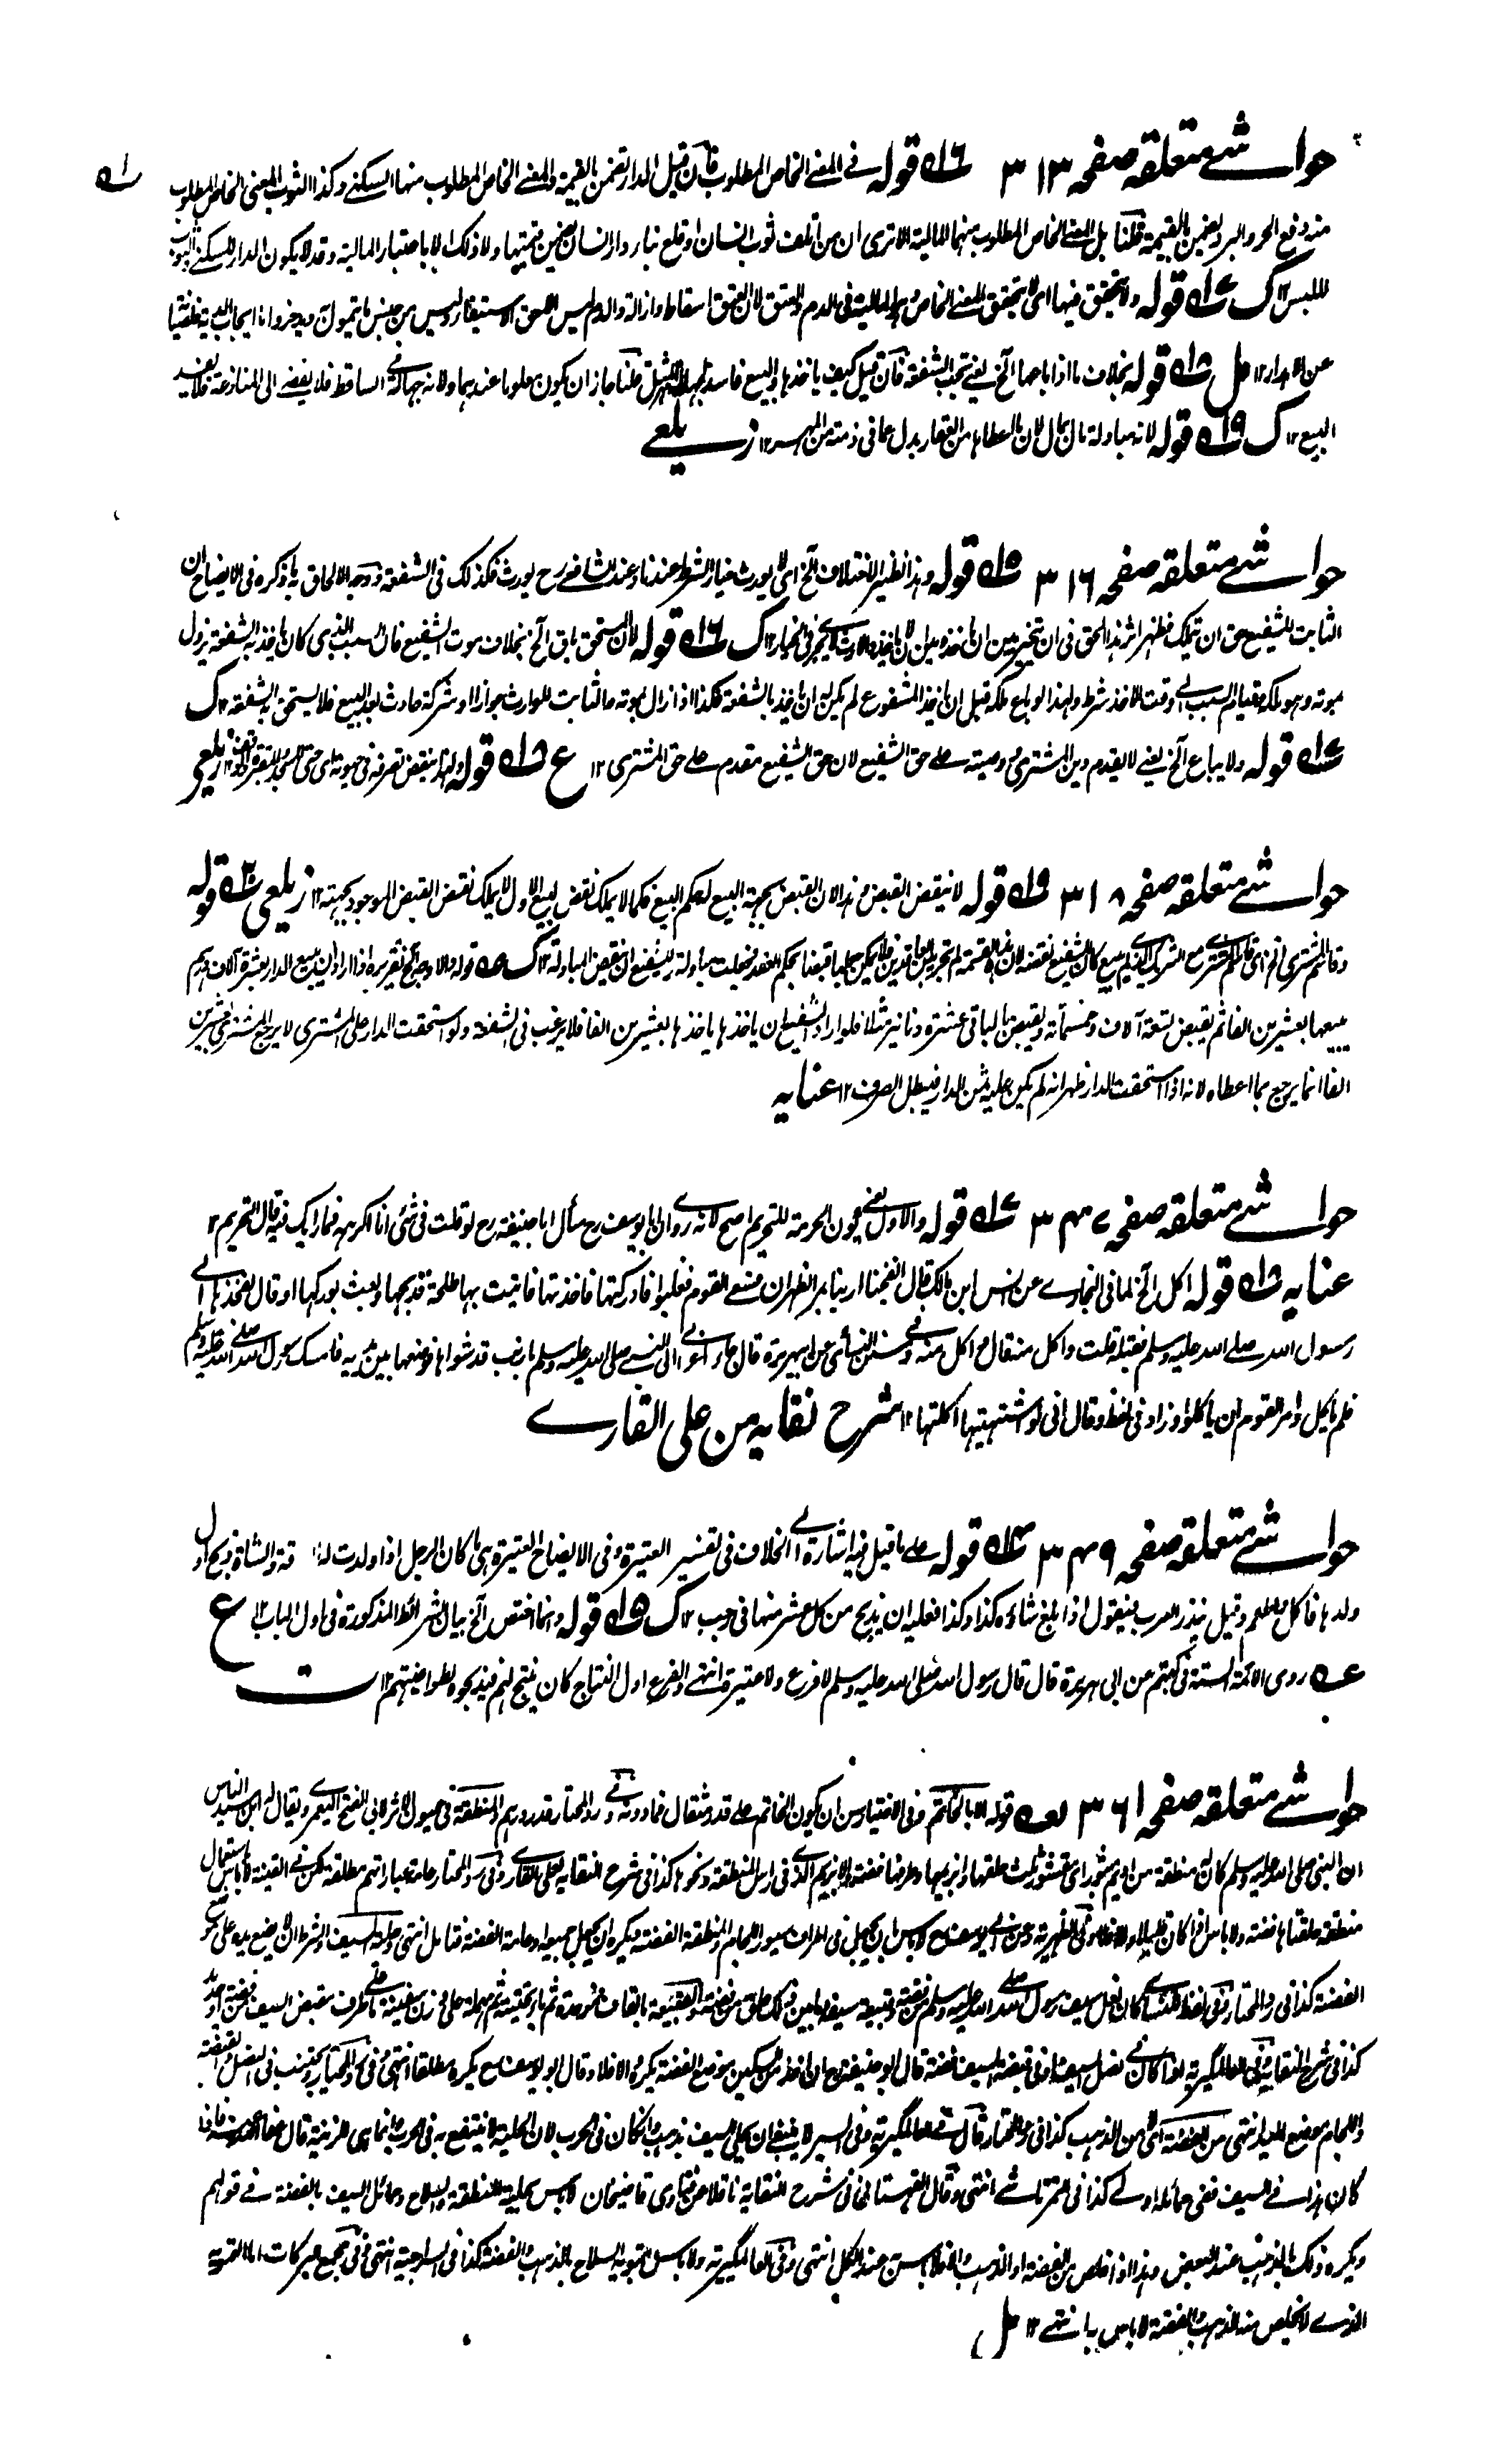 حواشے متعلقہ صفحہ ٣١٣ ١٦ قولہ فے المعنے الخاص المطلوب فان قیل الدار تضمن بالقیمۃ والمعنے الخاص المطلوب منہا السکنے وکذا الثوب المعنی الخاص المطلوب
منہ دفع الحر والبرد یضمن بالقیمۃ قلنا بل المعنے الخاص المطلوب منہما المالیۃ الاتری ان من اتلف ثوب انسان او قلع بناء دار انسان یضمن قیمتہا ولا ذلک الا باعتبار المالیۃ وقد لا یکون الدار للسکنے والثوب
للبس ١٢ ک ١٧ قولہ ولا یتحقق فیہا ای لا یتحقق المعنے الخاص وہو المالیۃ فی الدم والعتق لان العتق اسقاط وازالۃ والدم لیس الا حق الاستیفاء ولیس من جنس ما یتمول بہ ویدخر وانما ایجاب الدیۃ
عن الاہدار ١٢ مل ١٨ قولہ بخلاف ما اذا باعہا الخ یعنے تجب الشفعۃ فان قیل کیف یاخذہا والبیع فاسد لجہالۃ مہر المثل قلنا جاز ان یکون معلوما عندہما ولانہ جہالۃ فی الساقط فلا یفضے الی المنازعۃ فلا یفسد
البیع ١٢ ک ١٩ قولہ لانہ مبادلۃ مال بمال لان ما اعطاہا من العقار بدل عما فی ذمتہ من المہر ١٢ زیلعے
حواشے متعلقہ صفحہ ٣١٦ ١٥ قولہ وہذا نظیر الاختلاف الخ ای لا یورث خیار الشرط عندنا وعند الشافعے رح یورث فکذلک فی الشفعۃ ووجہ الالحاق بہ ما ذکرہ فی الایضاح ان
الثابت للشفیع حق ان یتملک فظہر اثر ہذا الحق فی ان یتخیر بین ان یاخذہ وبین ان لا یاخذہ والارث لا یجری فی الخیار ١٢ ک ١٦ قولہ لان المستحق باق الخ بخلاف موت الشفیع فان السبب الذی کان یاخذ بہ الشفعۃ یزول
بموتہ وہو ملکہ وقیام السبب الی وقت الاخذ شرط ولہذا لو باع ملکہ قبل ان یاخذ المشفوع لم یکن لہ ان یاخذ بالشفعۃ فکذا اذا زال بموتہ والثابت للوارث جوار او شرکۃ حادث بعد البیع فلا یستحق بہ الشفعۃ ١٢ ک
١٧ قولہ ولا یباع الخ یعنے لا یقدم دین المشتری ووصیتہ علے حق الشفیع لان حق الشفیع مقدم علے حق المشتری ١٢ ع ١٨ قولہ ولہذا ینقض تصرفہ فی حیوتہ ای حتی المسجد والمقبرۃ والوقف ١٢ زیلعی
حواشے متعلقہ صفحہ ٣١٨ ١٩ قولہ لا ینقض القبض وہذا لان القبض بجہۃ البیع لہ حکم البیع فکما لا یملک نقض البیع الاول لا یملک نقض القبض الموجود بجہتہ ١٢ زیلعی ٢٠ قولہ
وقاسم المشتری الخ ای قاسم المشتری مع الشریک الذی لم یبع کان للشفیع نقضہ لان ہذہ القسمۃ لم تجر بین العاقدین فلا یمکن جعلہا قبضا بحکم العقد فجعلت مبادلۃ وللشفیع ان ینقض المبادلۃ ١٢ ک قولہ والاوجہ الخ تقریرہ اذا اراد ان یبیع الدار بعشرۃ آلاف درہم
یبیعہا بعشرین الفا ثم یقبض تسعۃ آلاف وخمسمائۃ ویقبض بالباقی عشرۃ دنانیر مثلا فلو اراد الشفیع ان یاخذہا یاخذہا بعشرین الفا فلا یرغب فی الشفعۃ ولو استحقت الدار علی المشتری لا یرجع المشتری بعشرین
الفا انما یرجع بما اعطاہ لانہ اذا استحقت الدار ظہر انہ لم یکن علیہ ثمن الدار فیبطل الصرف ١٢ عنایہ
حواشے متعلقہ صفحہ ٣٤٧ ١٧ قولہ والاول یعنے کون الحرمۃ للتحریم اصح لانہ روی ان ابا یوسف رح سأل ابا حنیفۃ رح لو قلت فی شئی انا اکرہہ فما رایک فیہ قال التحریم ١٢
عنایہ ١٨ قولہ اکل الخ لما فی البخارے عن انس ابن مالک قال انفجنا ارنبا بمر الظہران فسعے القوم فغلبوا فادرکتہا فاخذتہا فاتیت بہا طلحۃ فذبحہا وبعث بورکہا او قال بفخذہا الے
رسول اللہ صلے اللہ علیہ وسلم فقبلہ قلت واکل منہ قال واکل منہ وفے سنن النسائی عن ابی ہریرۃ قال جاء اعرابی الی النبے صلی اللہ علیہ وسلم بارنب قد شواہا فوضعہا بین یدیہ فامسک رسول اللہ صلے اللہ علیہ وسلم
فلم یاکل وامر القوم ان یاکلوا وزاد فی لفظ وقال انی لو اشتہیتہا اکلتہا ١٢ شرح نقایہ من علی القارے
حواشے متعلقہ صفحہ ٣٤٩ ١٤ قولہ علے ما قیل فیہ اشارۃ الے الخلاف فی تفسیر العتیرۃ وفی الایضاح العتیرۃ ہی ما کان الرجل اذا ولدت لہ الناقۃ والشاۃ ذبح اول
ولدہا فاکل واطعم وقیل نذر العرب فیقول اذا بلغ شاءہ کذا وکذا فعلیہ ان یذبح من کل عشر منہا فی رجب ١٢ ک ١٥ قولہ وانما اختص الخ بیان الشرائط المذکورۃ فی اول الباب ١٢ ع
عہ روی الائمۃ الستۃ فی کتبہم عن ابی ہریرۃ قال قال رسول اللہ صلی اللہ علیہ وسلم لا فرع ولا عتیرۃ انتہے والفرع اول النتاج کان ینتج لہم فیذبحوہ لطواغیتہم ١٢ ت
حواشے متعلقہ صفحہ ٣٦١ قولہ الا بالخاتم وفی الاختیار سن ان یکون الخاتم علے قدر مثقال فما دونہ وفے رد المحتار قدر درہم والمنطقۃ فی عیون الاثر لابی الفتح الیعمرے ویقال لہ ابن سید الناس
ان النبی صلی اللہ علیہ وسلم کان لہ منطقۃ من ادیم مبشور ای مقشور ثلث حلقہا وابزیمہا وطرفہا فضۃ والابزیم الذے فی راس المنطقۃ ونحوہا کذا فی شرح النقایہ لعلی القاری وفی رد المحتار عامۃ عباراتہم مطلقۃ لکن فی القنیۃ لا باس باستعمال
منطقۃ حلقتاہا فضۃ ولا باس اذا کان قلیلا والا فلا وفی الظہیریۃ وعن ابی یوسف رح لا باس بان یجعل فی اطراف سیور اللجام والمنطقۃ الفضۃ ویکرہ ان یجعل جمیعہ او عامتہ الفضۃ فتامل انتہی وحلیۃ السیف والشرط ان لا یضع یدہ علی موضع
الفضۃ کذا فی رد المحتار وفی لفظ النسائی کان نعل سیف رسول اللہ صلے اللہ علیہ وسلم من فضۃ وقبیعۃ سیفہ وما بین ذلک حلق من فضۃ والقبیعۃ بالقاف فموحدۃ ثم یاء تحتیۃ ثم مہملۃ علی وزن سفینۃ ما علی طرف مقبض السیف من فضۃ او حدید
کذا فی شرح النقایۃ وفی العالمگیریۃ لو کان فے نصل السیف او فی قبضۃ السیف فضۃ قال ابو حنیفۃ رح ان اخذ من السکین موضع الفضۃ یکرہ والا فلا وقال ابو یوسف رح یکرہ مطلقا انتہی وفی رد المحتار ویجتنب فی النصل والقبضۃ
واللجام موضع الید انتہی من الفضۃ ای لا من الذہب کذا فی رد المحتار قال فے العالمگیریۃ وفی السیر لا ینبغی ان یحلی السیف بذہب وان کان فی الحرب لان الحلیۃ لا ینتفع بہ فی الحرب وانما ہی للزینۃ قال فاذا
کان ہذا فے السیف ففی حمائلہ اولے کذا فی التمرتاشے انتہی وقال القہستانی فی شرح النقایۃ ناقلا عن فتاوی قاضیخان لا باس بحلیۃ المنطقۃ والسلاح وحمائل السیف بالفضۃ فے قولہم
ویکرہ ذلک بالذہب عند البعض وہذا اذا خلص من الفضۃ او الذہب والا فلا باس بہ عند الکل انتہی وفی العالمگیریۃ ولا باس بتمویہ السلاح بالذہب والفضۃ کذا فی السراجیۃ انتہی وفی مجمع البرکات اما التمویہ
الذے لا یخلص منہ الذہب والفضۃ لا باس بہ انتہے ١٢ مل